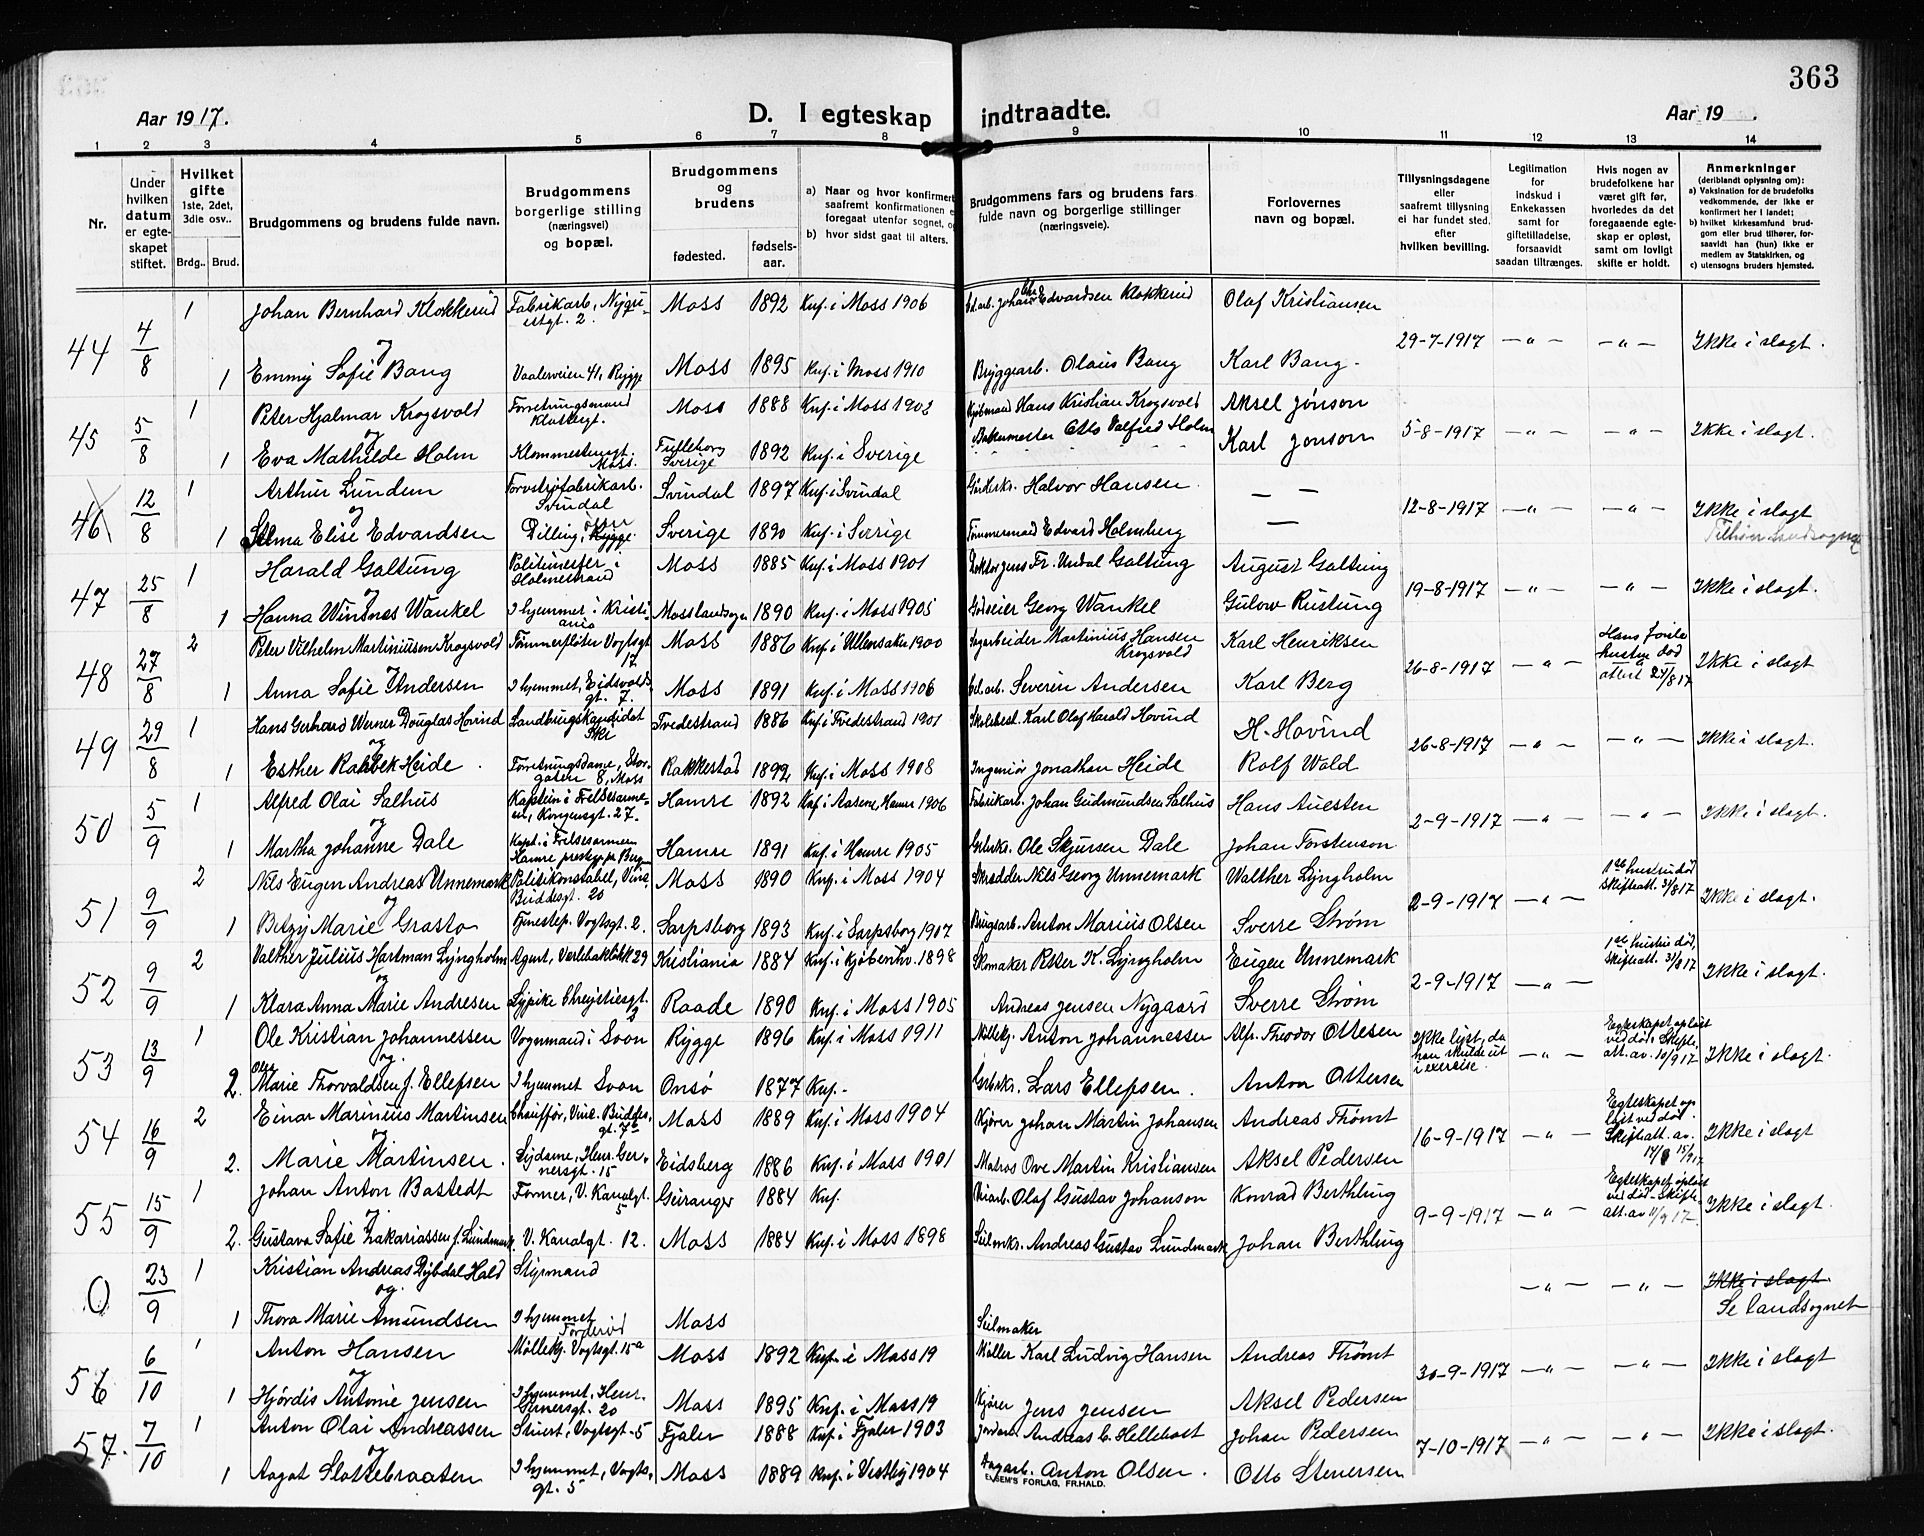 363
Aar 1917.
D. I egteskap indtraadte.
Aar 19 .
1 2 3 4 5 6 7 8 9 10 11 12 13 14
Nr.
Under hvilken datum er egteskapet stiftet.
Hvilket gifte 1ste, 2det, 3die osv..
Brdg.. Brud.
Brudgommens og brudens fulde navn.
Brudgommens borgerlige stilling (næringsvei) og bopæl.
Brudgommens og brudens
fødested.
fødsels-aar.
a) Naar og hvor konfirmert
saafremt konfirmationen e
foregaat utenfor sognet, og
b) hvor sidst gaat til alters.
Brudgommens fars og brudens fars
fulde navn og borgerlige stillinger
(næringsveie).
Forlovernes
navn og bopæl.
Tillysningsdagene
eller
saafremt tillysning
ei har fundet sted.
efter
hvilken bevilling.
Legitimation
for
indskud i
Enkekassen
samt for
giftetilladelse,
forsaavidt
saadan tiltrænges.
Hvis nogen av
brudefolkene har
været gift før,
hvorledes da det
foregaaende egte-
skap er opløst,
samt om lovligt
skifte er holdt.
Anmerkninger
(deriblandt oplysning om):
a) Vaksination for de brudefolks
vedkommende, der ikke er
konfirmert her i landet;
b) hvilket kirkesamfund brud-
gom eller brud tilhører, for-
saavidt han (hun) ikke er
medlem av Statskirken, og
c) utensogns bruders hjemsted.
44 4/8 1 Johan Bernhard Klokkerud Moss 1892 Knf. i Moss 1906 Edvardsen Klokkerud Olaf Kristiansen
og 29-7-1917 — „ — — „ — Ikke i slegt.
1 Emmy Sofie Bang Vaalerveien 41, Rygge Moss 1895 Knf. i Moss 1910 Bryggearb. Olaus Bang Karl Bang.
45 5/8 1 Peter Hjalmar Krogsvold Forretningsmand Klostergt. Moss 1888 Knf. i Moss 1902 Kjøbmand Hans Kristian Krogsvold Aksel Jonson
og 5-8-1917 — „ — — „ — Ikke i slegt.
1 Eva Mathilde Holm Moss. Sverige 1892 Knf. i Sverige Bakermester Otto Valfred Holm Karl Jonson
46 12/8 1 Arthur Lunden Svindal Svindal 1897 Knf. i Svindal Gårdbrkr. Halvor Hansen — —
og 12-8-1917 — „ — — „ — Ikke i slegt
1 Selma Elise Edvardsen Dilling, Rygge Sverige 1890 Knf. i Sverige Tømmermand Edvard Holmberg —
47 25/8 1 Harald Galtung Politimester i Holmestrand Moss 1885 Knf. i Moss 1901 Doktor Jens Fr. Undal Galtung August Galtung
og 19-8-1917 — „ — — „ — Ikke i slegt.
1 Hanna Windnes Wankel I hjemmet i Kristiania Mosslandsogn 1890 Knf. i Moss 1905 Godseier Georg Wankel Gulow Rustung
48 27/8 2 Peter Vilhelm Martiniussen Krogsvold Tømmerfløter Vogtsgt 17 Moss 1886 Knf. i Ullensaker 1900 Sagarbeider Martinius Hansen Krogsvold Karl Henriksen
og 26-8-1917 — „ — Hans første hustru død attest 27/8 17 Ikke i slegt
1 Anna Sofie Andersen I hjemmet, Eidsvoldsgt. 7. Moss 1891 Knf. i Moss 1906 Severin Andersen Karl Berg
49 29/8 1 Hans Gerhard Werner Douglas Hovind Landbrugskandidat Ski Tvedestrand 1886 Knf. i Tvedestrand 1901 Skolebest. Karl Olaf Harald Hovind H. Hovind
og 26-8-1917 — „ — — „ — Ikke i slegt.
1 Esther Rahbek Heide. Forretningsdame, Storgaten 8, Moss Rakkestad 1892 Knf. i Moss 1908 Ingeniør Jonathan Heide Rolf Wald
50 5/9 1 Alfred Olai Salhus Kaptein i Frelsesarmeen, Kongensgt. 27. Hamre 1892 Knf. i Aasene, Hamre 1906 Fabrikarb. Johan Gudmundsen Salhus Hans Auesten
og 2-9-1917 — „ — — „ — Ikke i slegt.
1 Martha Johanne Dale Kapt. i Frelsesarmeen Hamre prestegj. pr. Bergen Hamre 1891 Knf. i Hamre 1905 Grbrkr. Ole Skjursen Dale Johan Torstenson
51 9/9 2 Nils Eugen Andreas Unnemark Politikonstabel, Vinc. Buddesgt. 20 Moss 1890 Knf. i Moss 1904 Skrædder Nils Georg Unnemark Walther Lyngholm
og 2-9-1917 — „ — 1ste hustru død skifteatt. 31/8 17 Ikke i slegt.
1 Betzy Marie Grasto Tjenestep. Vogtsgt. 2. Sarpsborg 1893 Knf. i Sarpsborg 1907 Brugsarb. Anton Marius Olsen Sverre Strøm
52 9/9 2 Valther Julius Hartman Lyngholm Agent, Værlebakkbk 29 Kristiania 1884 Knf. i Kjøbenhv. 1898 Skomaker Petter K. Lyngholm Eugen Unnemark
og 2-9-1917 — „ — 1ste hustru død, skifteatt. Ikke i slegt.
1 Klara Anna Marie Andresen Sypike Chrystiesgt. 3 Raade 1890 Knf. i Moss 1905 Andreas Jensen Nygaard Sverre Strøm
53 13/9 1 Ole Kristian Johannessen Vognmand i Soon Rygge 1896 Knf. i Moss 1911 Møllebg. Anton Johannessen Alfr. Theodor Ottesen
og Ikke lyst, da han skulde ut i exersise. — „ — Egteskapet opløst ved død. Skifteatt. av. 10/9 17 Ikke i slegt.
2. Marie Thorvaldsen f. Ellefsen I hjemmet Soon Onsø 1877 Knf. - Grbrkr. Lars Ellefsen. Anton Ottersen
54 16/9 2 Einar Marinius Martinsen Chauffør, Vinc. Buddesgt. 7b Moss 1889 Knf. i Moss 1904 Kjører Johan Martin Johansen Andreas Thømt
og 16-9-1917 — „ — Egteskapet opløst ved død. Skifteatt. av. Ikke i slegt
2. Marie Martinsen. Sydame, Henr. Gernersgt. 15 Eidsberg 1886 Knf. i Moss 1901 Matros Ove Martin Kristiansen Aksel Pedersen
55 15/9 1 Johan Anton Bastedt Former, V. Kanalgt. 5 Geiranger 1884 Knf. Olaf Gustav Johanson Konrad Berthling
og 9-9-1917 — „ — Egteskapet opløst ved død - Skifteatt. av 11/9 17 Ikke i slegt.
2. Gustava Sofie Zakariassen f. Lundmark V. Kanalgt. 12. Moss 1884 Knf. i Moss 1898 Seilmkr. Andreas Gustav Lundmark Johan Berthling
0 23/9 1 Kristian Andreas Dybdal Hald Styrmand
og — „ — — „ — Ikke i slegt. Se landsognet
1 Thora Marie Amundsen I hjemmet Moss Seilmaker
56 6/10 1 Anton Hansen Møllebg. Vogtsgt. 15a Moss 1892 Knf. i Moss 19 Møller Karl Ludvig Hansen Andreas Thømt
og 30-9-1917 — „ — — „ — Ikke i slegt
1 Hjørdis Antonie Jensen I hjemmet, Henr. Gernersgt. 20 Moss 1895 Knf. i Moss 19 Kjører Jens Jensen Aksel Pedersen
57. 7/10 1 Anton Olai Andreassen Stuert, Vogtsgt. 5 Fjaler 1888 Knf. i Fjaler 1903 Andreas C. Hellebost Johan Pedersen
og 7-10-1917 — „ — — „ — Ikke i slegt.
1 Aagot Slottebraaten I hjemmet, Vogtsgt. 5 Moss 1889 Knf. i Vestby 1904 Anton Olsen. Otto Stenersen
E. SEM'S FORLAG, FR.HALD.